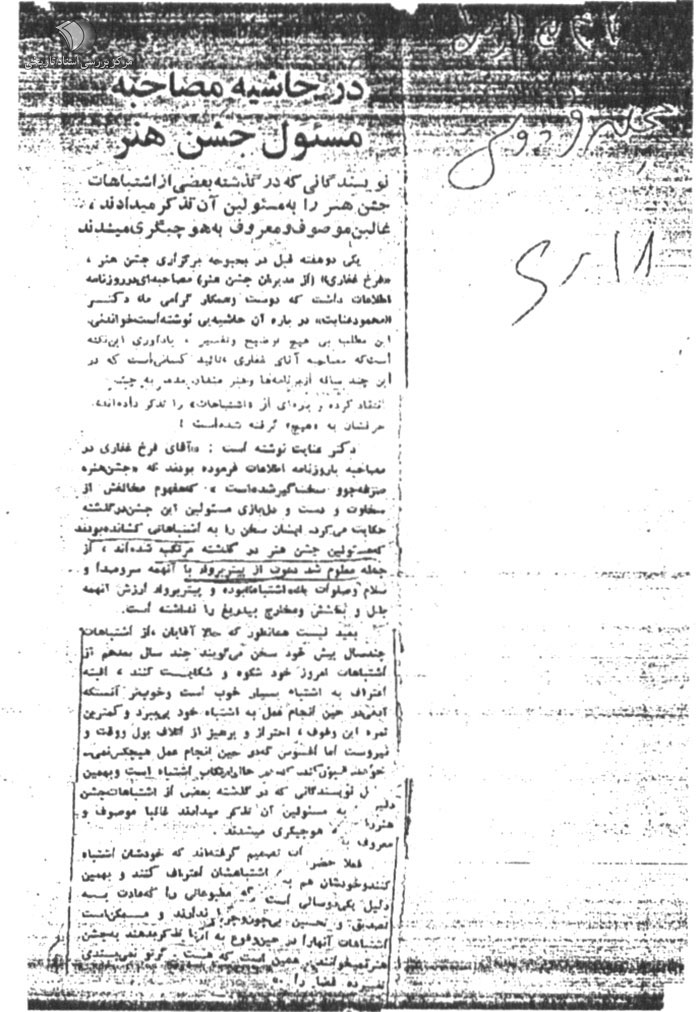 مرکز بررسی اسناد تاریخی
مجله فردوسی
در حاشیه مصاحبه
مسئول جشن هنر
نویسندگانی که در گذشته بعضی از اشتباهات
جشن هنر را به مسئولین آن تذکر میدادند،
غالبن موصوف و معروف به هوچیگری میشدند
یکی دو هفته قبل در بحبوحه برگزاری جشن هنر،
«فرخ غفاری» (از مدیران جشن هنر) مصاحبه‌ای در روزنامه
اطلاعات داشت که دوست و همکار گرامی ما، دکتر
«محمود عنایت» در باره آن حاشیه‌یی نوشته است خواندنی.
این مطلب بی هیچ توضیح و تفسیر، یادآوری این نکته
است که مصاحبه آقای غفاری تائید کسانی است که در
این چند ساله از برنامه‌ها و هنر
انتقاد کرده و پاره‌ای از «اشتباهات» را تذکر داده‌اند
حرفشان به «هیچ» گرفته شده است!
دکتر عنایت نوشته است: «آقای فرخ غفاری در
مصاحبه با روزنامه اطلاعات فرموده بودند که «جشن هنر»
صرفه‌جو و سختگیر شده است» که مفهوم مخالفش از
سخاوت و دست و دل‌بازی مسئولین این جشن در گذشته
حکایت می‌کرد. ایشان سخن را به اشتباهاتی کشانده بودند
که مسئولین جشن هنر در گذشته مرتکب شده‌اند، از
جمله معلوم شد دعوت از پیتر بروک با آنهمه سر و صدا و
سلام و صلوات یک اشتباه بوده و پیتر بروک ارزش آنهمه
بذل و بخشش و مخارج بیدریغ را نداشته است.
بعید نیست همانطور که حالا آقایان از اشتباهات
چند سال پیش خود سخن می‌گویند چند سال بعد هم از
اشتباهات امروز خود شکوه و شکایت کنند، البته
اعتراف به اشتباه بسیار خوب است و خوب‌تر آنستکه
آدمی در حین انجام عمل به اشتباه خود پی ببرد و کمترین
ثمره این وقوف، احتراز و پرهیز از اتلاف پول و وقت و
نیروست اما افسوس که در حین انجام عمل هیچکس نمی‌
خواهد قبول کند که در حال ارتکاب اشتباه است و بهمین
دلیل نویسندگانی که در گذشته بعضی از اشتباهات جشن
هنر را به مسئولین آن تذکر میدادند غالبا موصوف و
معروف به هوچیگری میشدند.
فعلا حضرات تصمیم گرفته‌اند که خودشان اشتباه
کنند و خودشان هم به اشتباهشان اعتراف کنند و بهمین
دلیل یکی دو سالی است که مطبوعاتی را که عادت به
تصدیق و تحسین بی‌چون و چرا ندارند و ممکن است
اشتباهات آنها را در حین وقوع به آنها تذکر بدهند به جشن
هنر نمیخوانند. همین است که هست گر تو نمی‌پسندی
قضا را»